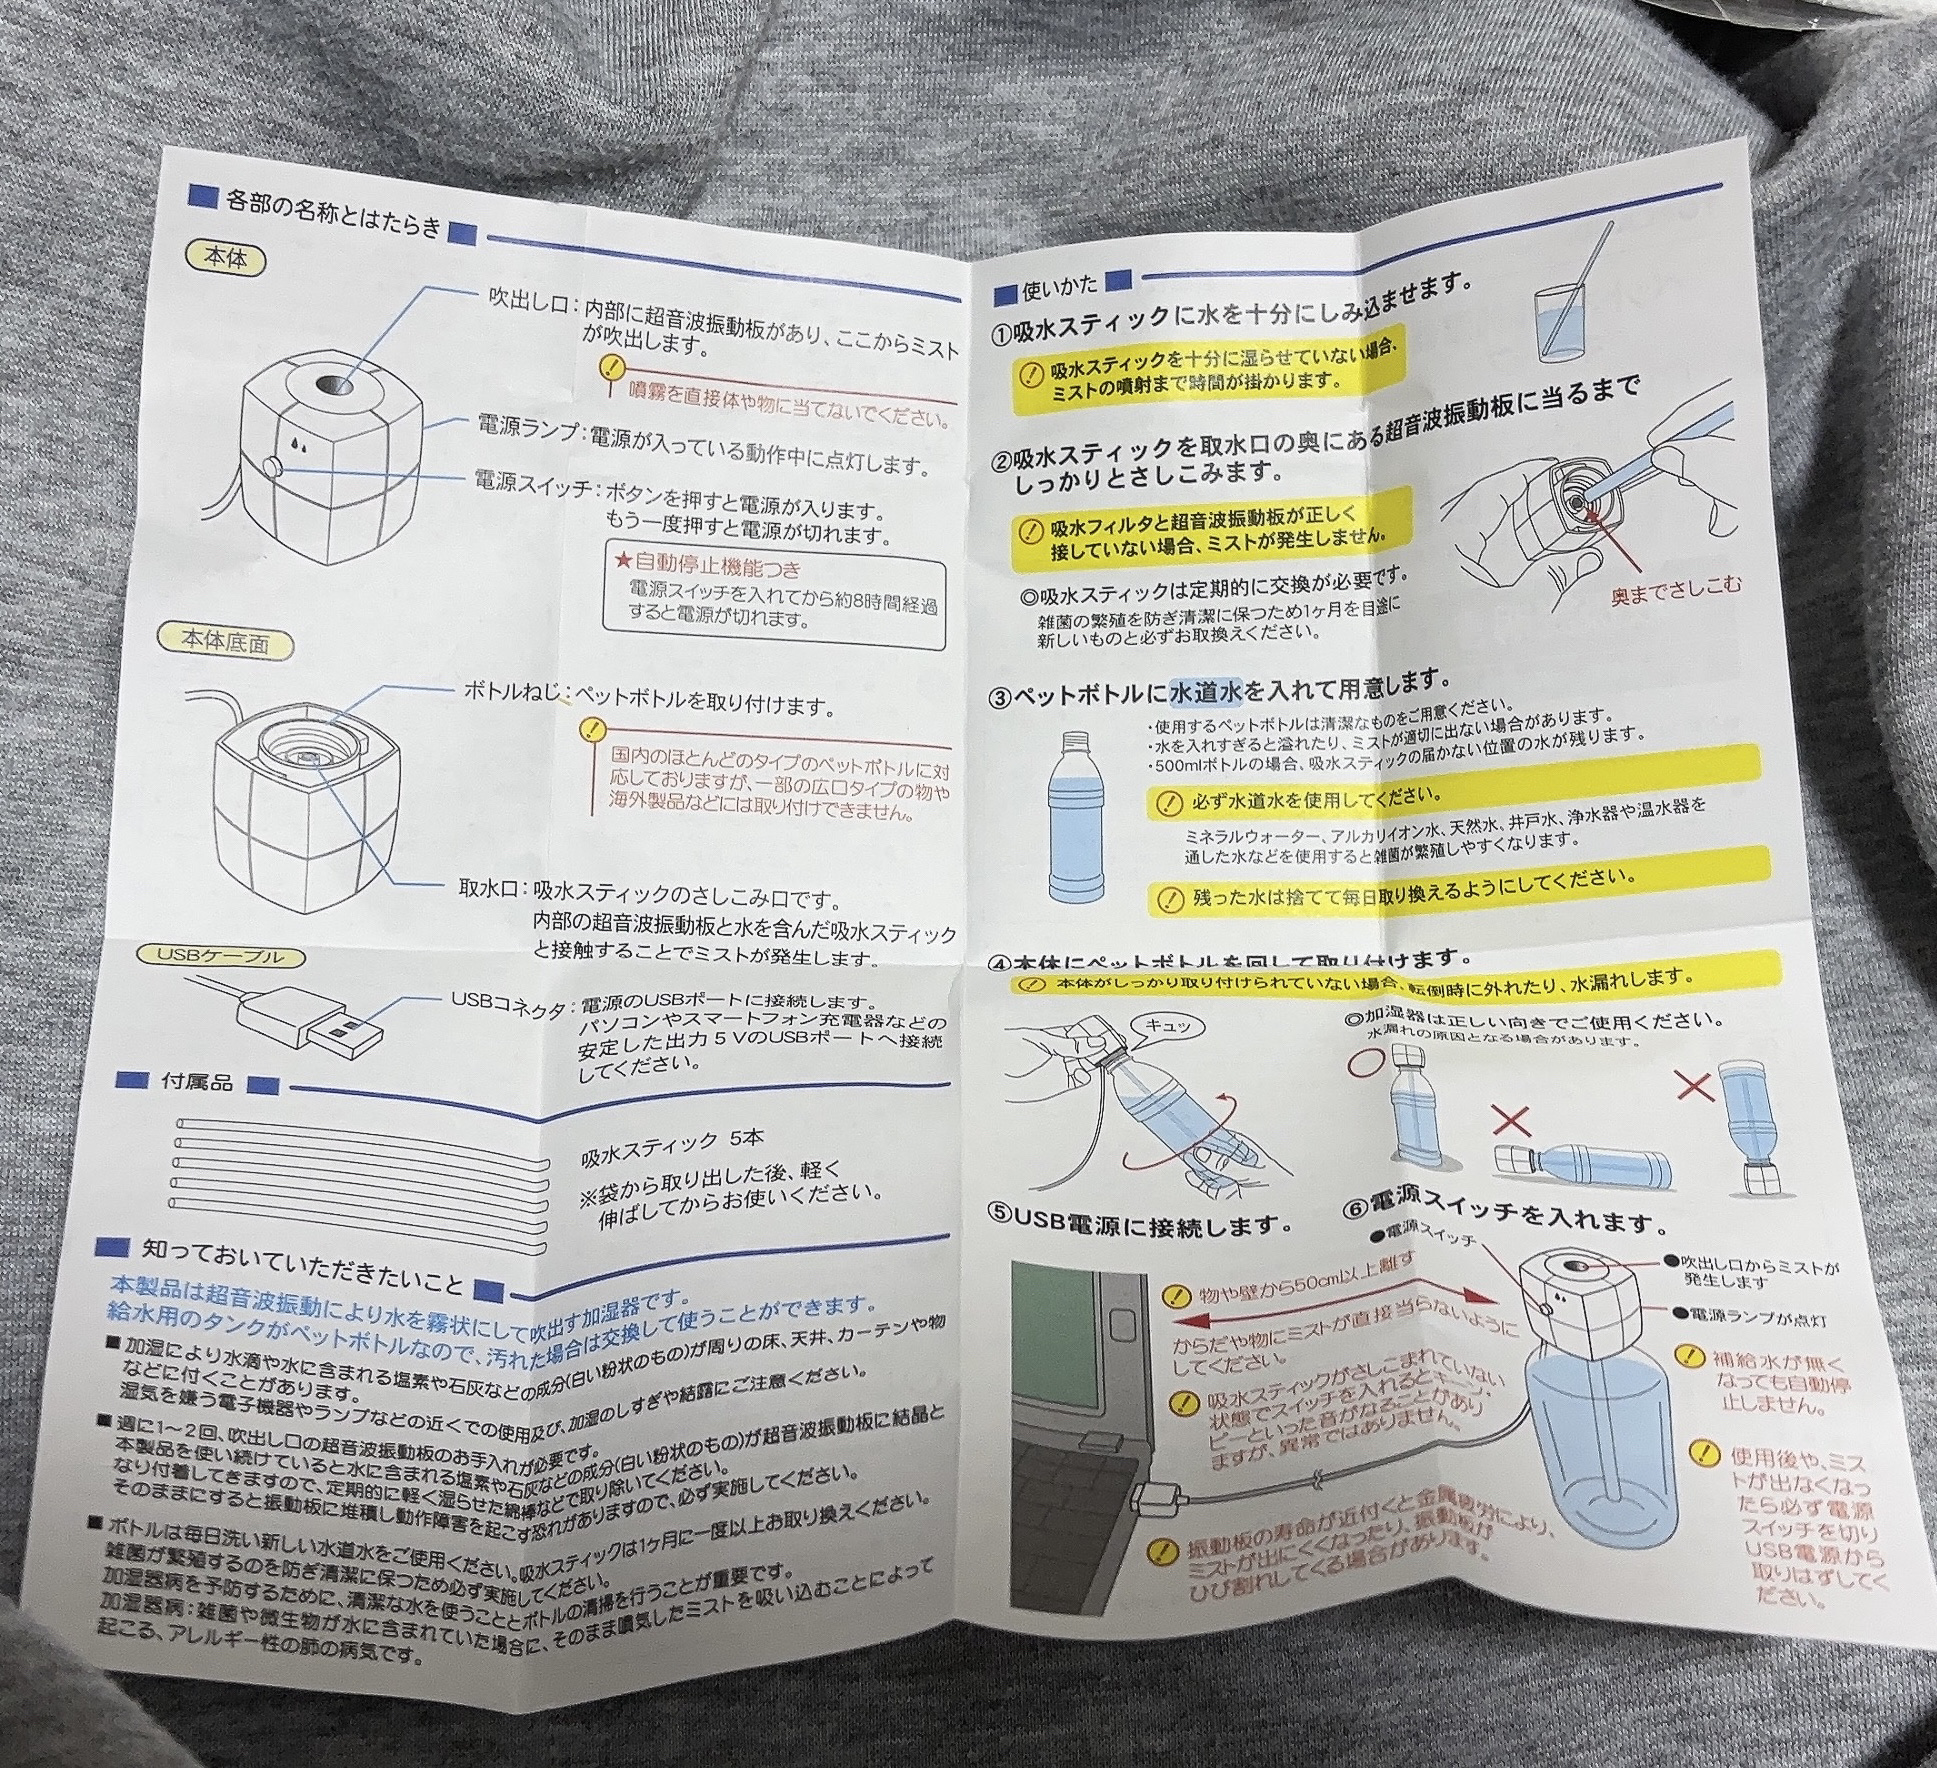 各部の名称とはたらき
本体
吹出し口：内部に超音波振動板があり、ここからミスト
が吹出します。
噴霧を直接体や物に当てないでください。
電源ランプ：電源が入っている動作中に点灯します。
電源スイッチ：ボタンを押すと電源が入ります。
もう一度押すと電源が切れます。
★自動停止機能つき
電源スイッチを入れてから約8時間経過
すると電源が切れます。
本体底面
ボトルねじ：ペットボトルを取り付けます。
国内のほとんどのタイプのペットボトルに対
応しておりますが、一部の広口タイプの物や
海外製品などには取り付けできません。
取水口：吸水スティックのさしこみ口です。
内部の超音波振動板と水を含んだ吸水スティック
と接触することでミストが発生します。
USBケーブル
USBコネクタ：電源のUSBポートに接続します。
パソコンやスマートフォン充電器などの
安定した出力５VのUSBポートへ接続
してください。
付属品
吸水スティック 5本
※袋から取り出した後、軽く
伸ばしてからお使いください。
知っておいていただきたいこと
本製品は超音波振動により水を霧状にして吹出す加湿器です。
給水用のタンクがペットボトルなので、汚れた場合は交換して使うことができます。
■加湿により水滴や水に含まれる塩素や石灰などの成分(白い粉状のもの)が周りの床、天井、カーテンや物
などに付くことがあります。
湿気を嫌う電子機器やランプなどの近くでの使用及び、加湿のしすぎや結露にご注意ください。
■週に1～2回、吹出し口の超音波振動板のお手入れが必要です。
本製品を使い続けていると水に含まれる塩素や石灰などの成分(白い粉状のもの)が超音波振動板に結晶と
なり付着してきますので、定期的に軽く湿らせた綿棒などで取り除いてください。
そのままにすると振動板に堆積し動作障害を起こす恐れがありますので、必ず実施してください。
■ボトルは毎日洗い新しい水道水をご使用ください。吸水スティックは1ヶ月に一度以上お取り換えください。
雑菌が繁殖するのを防ぎ清潔に保つため必ず実施してください。
加湿器病を予防するために、清潔な水を使うこととボトルの清掃を行うことが重要です。
加湿器病：雑菌や微生物が水に含まれていた場合に、そのまま噴気したミストを吸い込むことによって
起こる、アレルギー性の肺の病気です。
使いかた
①吸水スティックに水を十分にしみ込ませます。
吸水スティックを十分に湿らせていない場合、
ミストの噴射まで時間が掛かります。
②吸水スティックを取水口の奥にある超音波振動板に当るまで
しっかりとさしこみます。
吸水フィルタと超音波振動板が正しく
接していない場合、ミストが発生しません。
◎吸水スティックは定期的に交換が必要です。
雑菌の繁殖を防ぎ清潔に保つため1ヶ月を目途に
新しいものと必ずお取換えください。
奥までさしこむ
③ペットボトルに水道水を入れて用意します。
・使用するペットボトルは清潔なものをご用意ください。
・水を入れすぎると溢れたり、ミストが適切に出ない場合があります。
・500mlボトルの場合、吸水スティックの届かない位置の水が残ります。
必ず水道水を使用してください。
ミネラルウォーター、アルカリイオン水、天然水、井戸水、浄水器や温水器を
通した水などを使用すると雑菌が繁殖しやすくなります。
残った水は捨てて毎日取り換えるようにしてください。
④本体にペットボトルを回して取り付けます。
本体がしっかり取り付けられていない場合、転倒時に外れたり、水漏れします。
キュッ
◎加湿器は正しい向きでご使用ください。
水漏れの原因となる場合があります。
⑤USB電源に接続します。
⑥電源スイッチを入れます。
●電源スイッチ
●吹出し口からミストが
発生します
●電源ランプが点灯
物や壁から50cm以上離す
からだや物にミストが直接当らないように
してください。
吸水スティックがさしこまれていない
状態でスイッチを入れるとキーン、
ピーといった音がなることがあり
ますが、異常ではありません。
振動板の寿命が近付くと金属疲労により、
ミストが出にくくなったり、振動板が
ひび割れしてくる場合があります。
補給水が無く
なっても自動停
止しません。
使用後や、ミス
トが出なくなっ
たら必ず電源
スイッチを切り
USB電源から
取りはずしてく
ださい。